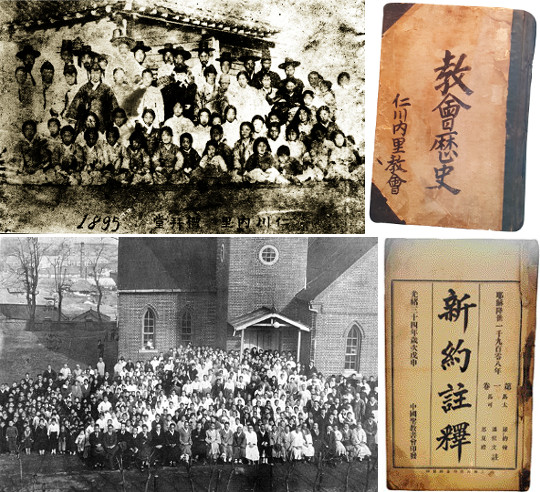 1895
仁川內里禮拜堂
教會歷史
仁川內里教會
耶穌降世一千九百零八年
第一卷
馬太
馬可
新約註釋
光緒三十四年歲次戊申
中國聖教書會印發